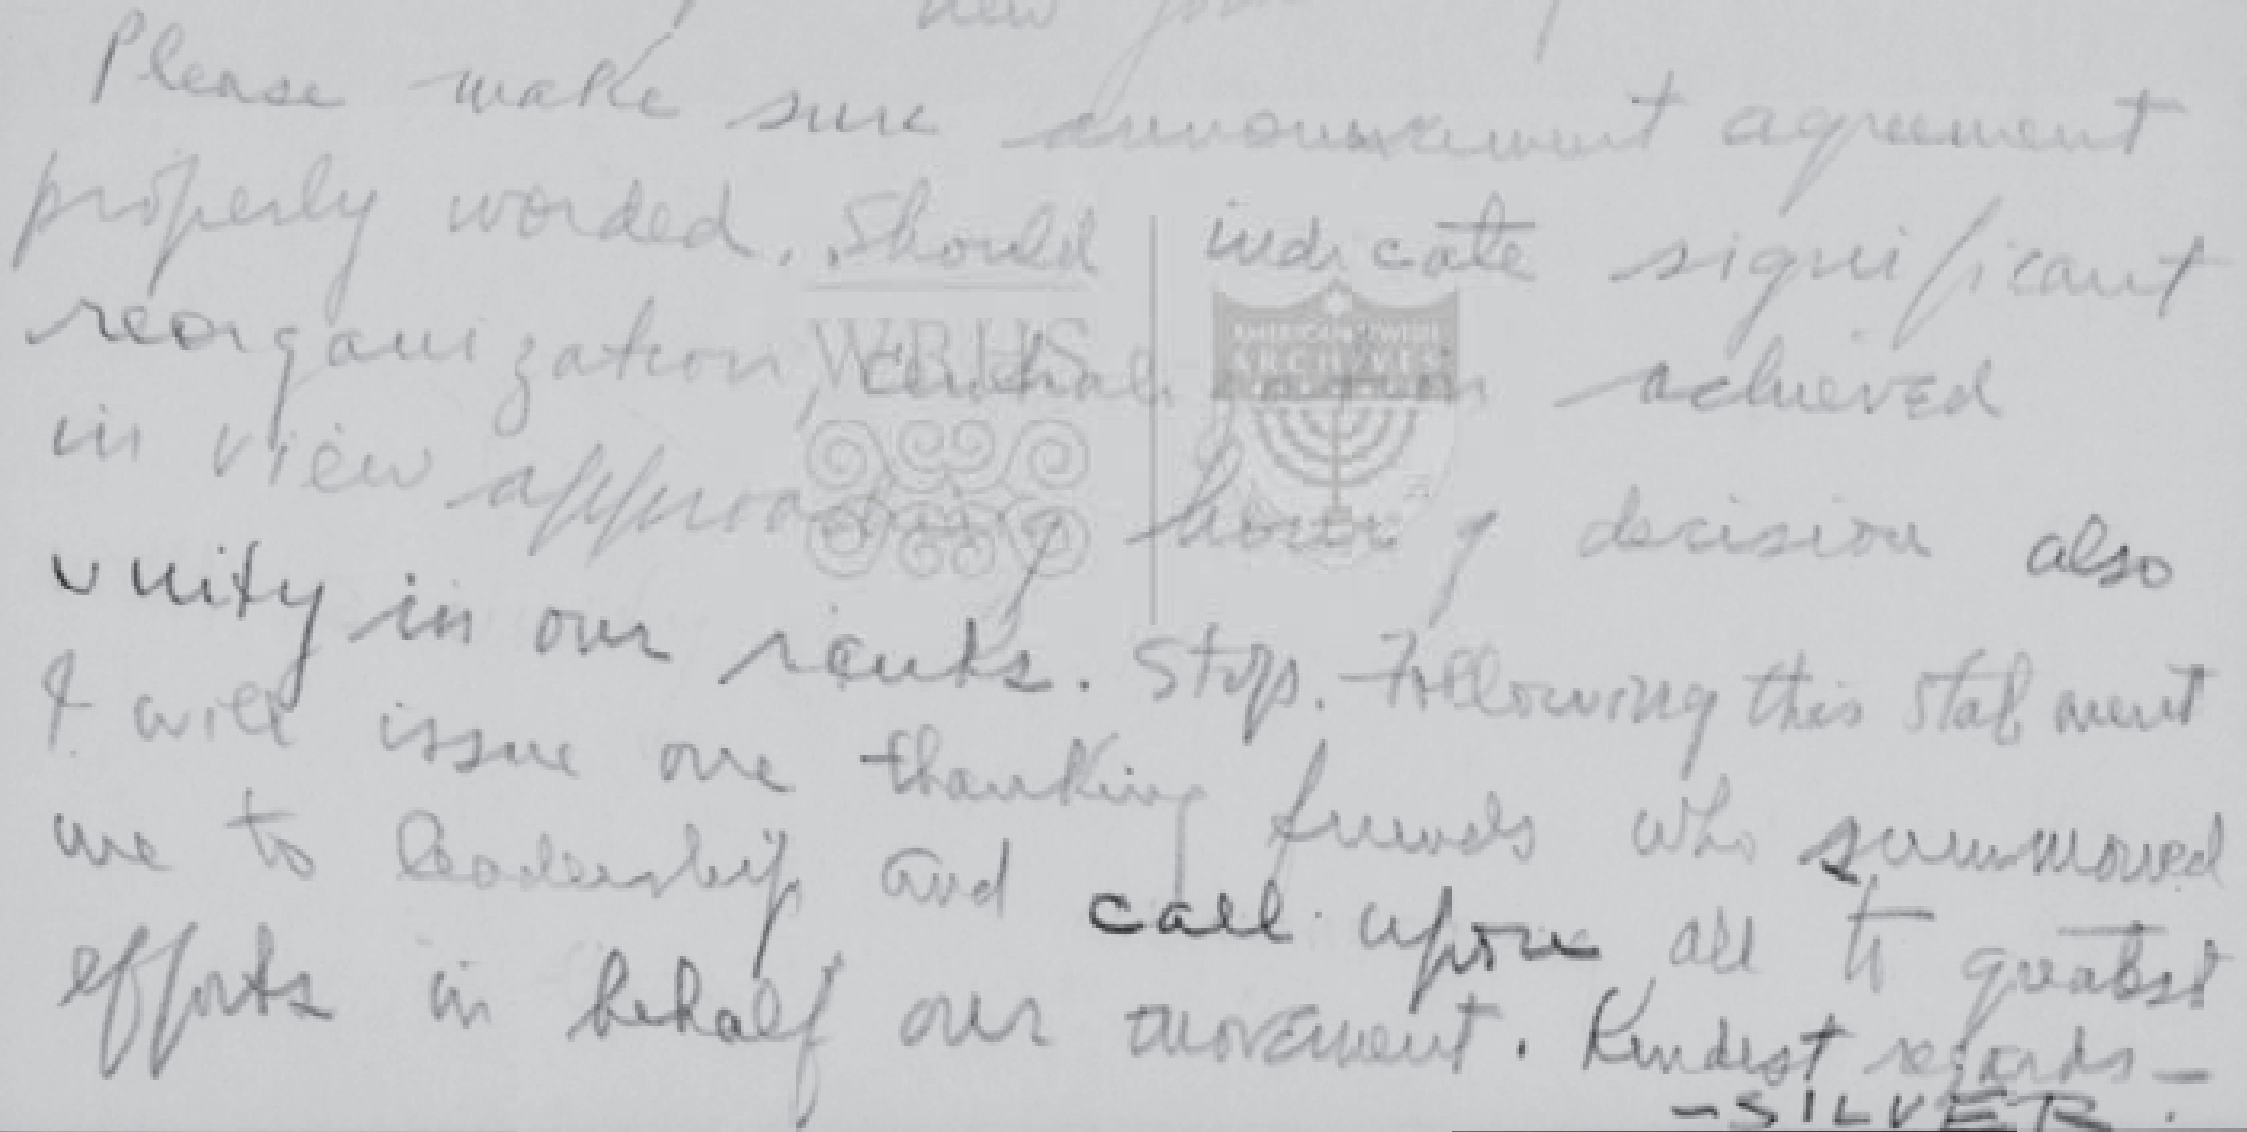 New York
Please make sure announcement agreement
properly worded. Should indicate significant
reorganization, central achieved
in view approaching hour of decision also
unity in our ranks. Stop. Following this statment
I will issue one thanking friends who summoned
me to leadership and call upon all to greatest
efforts in behalf our movement. Kindest regards—
-SILVER.
WRHS
AMERICAN JEWISH
ARCHIVES